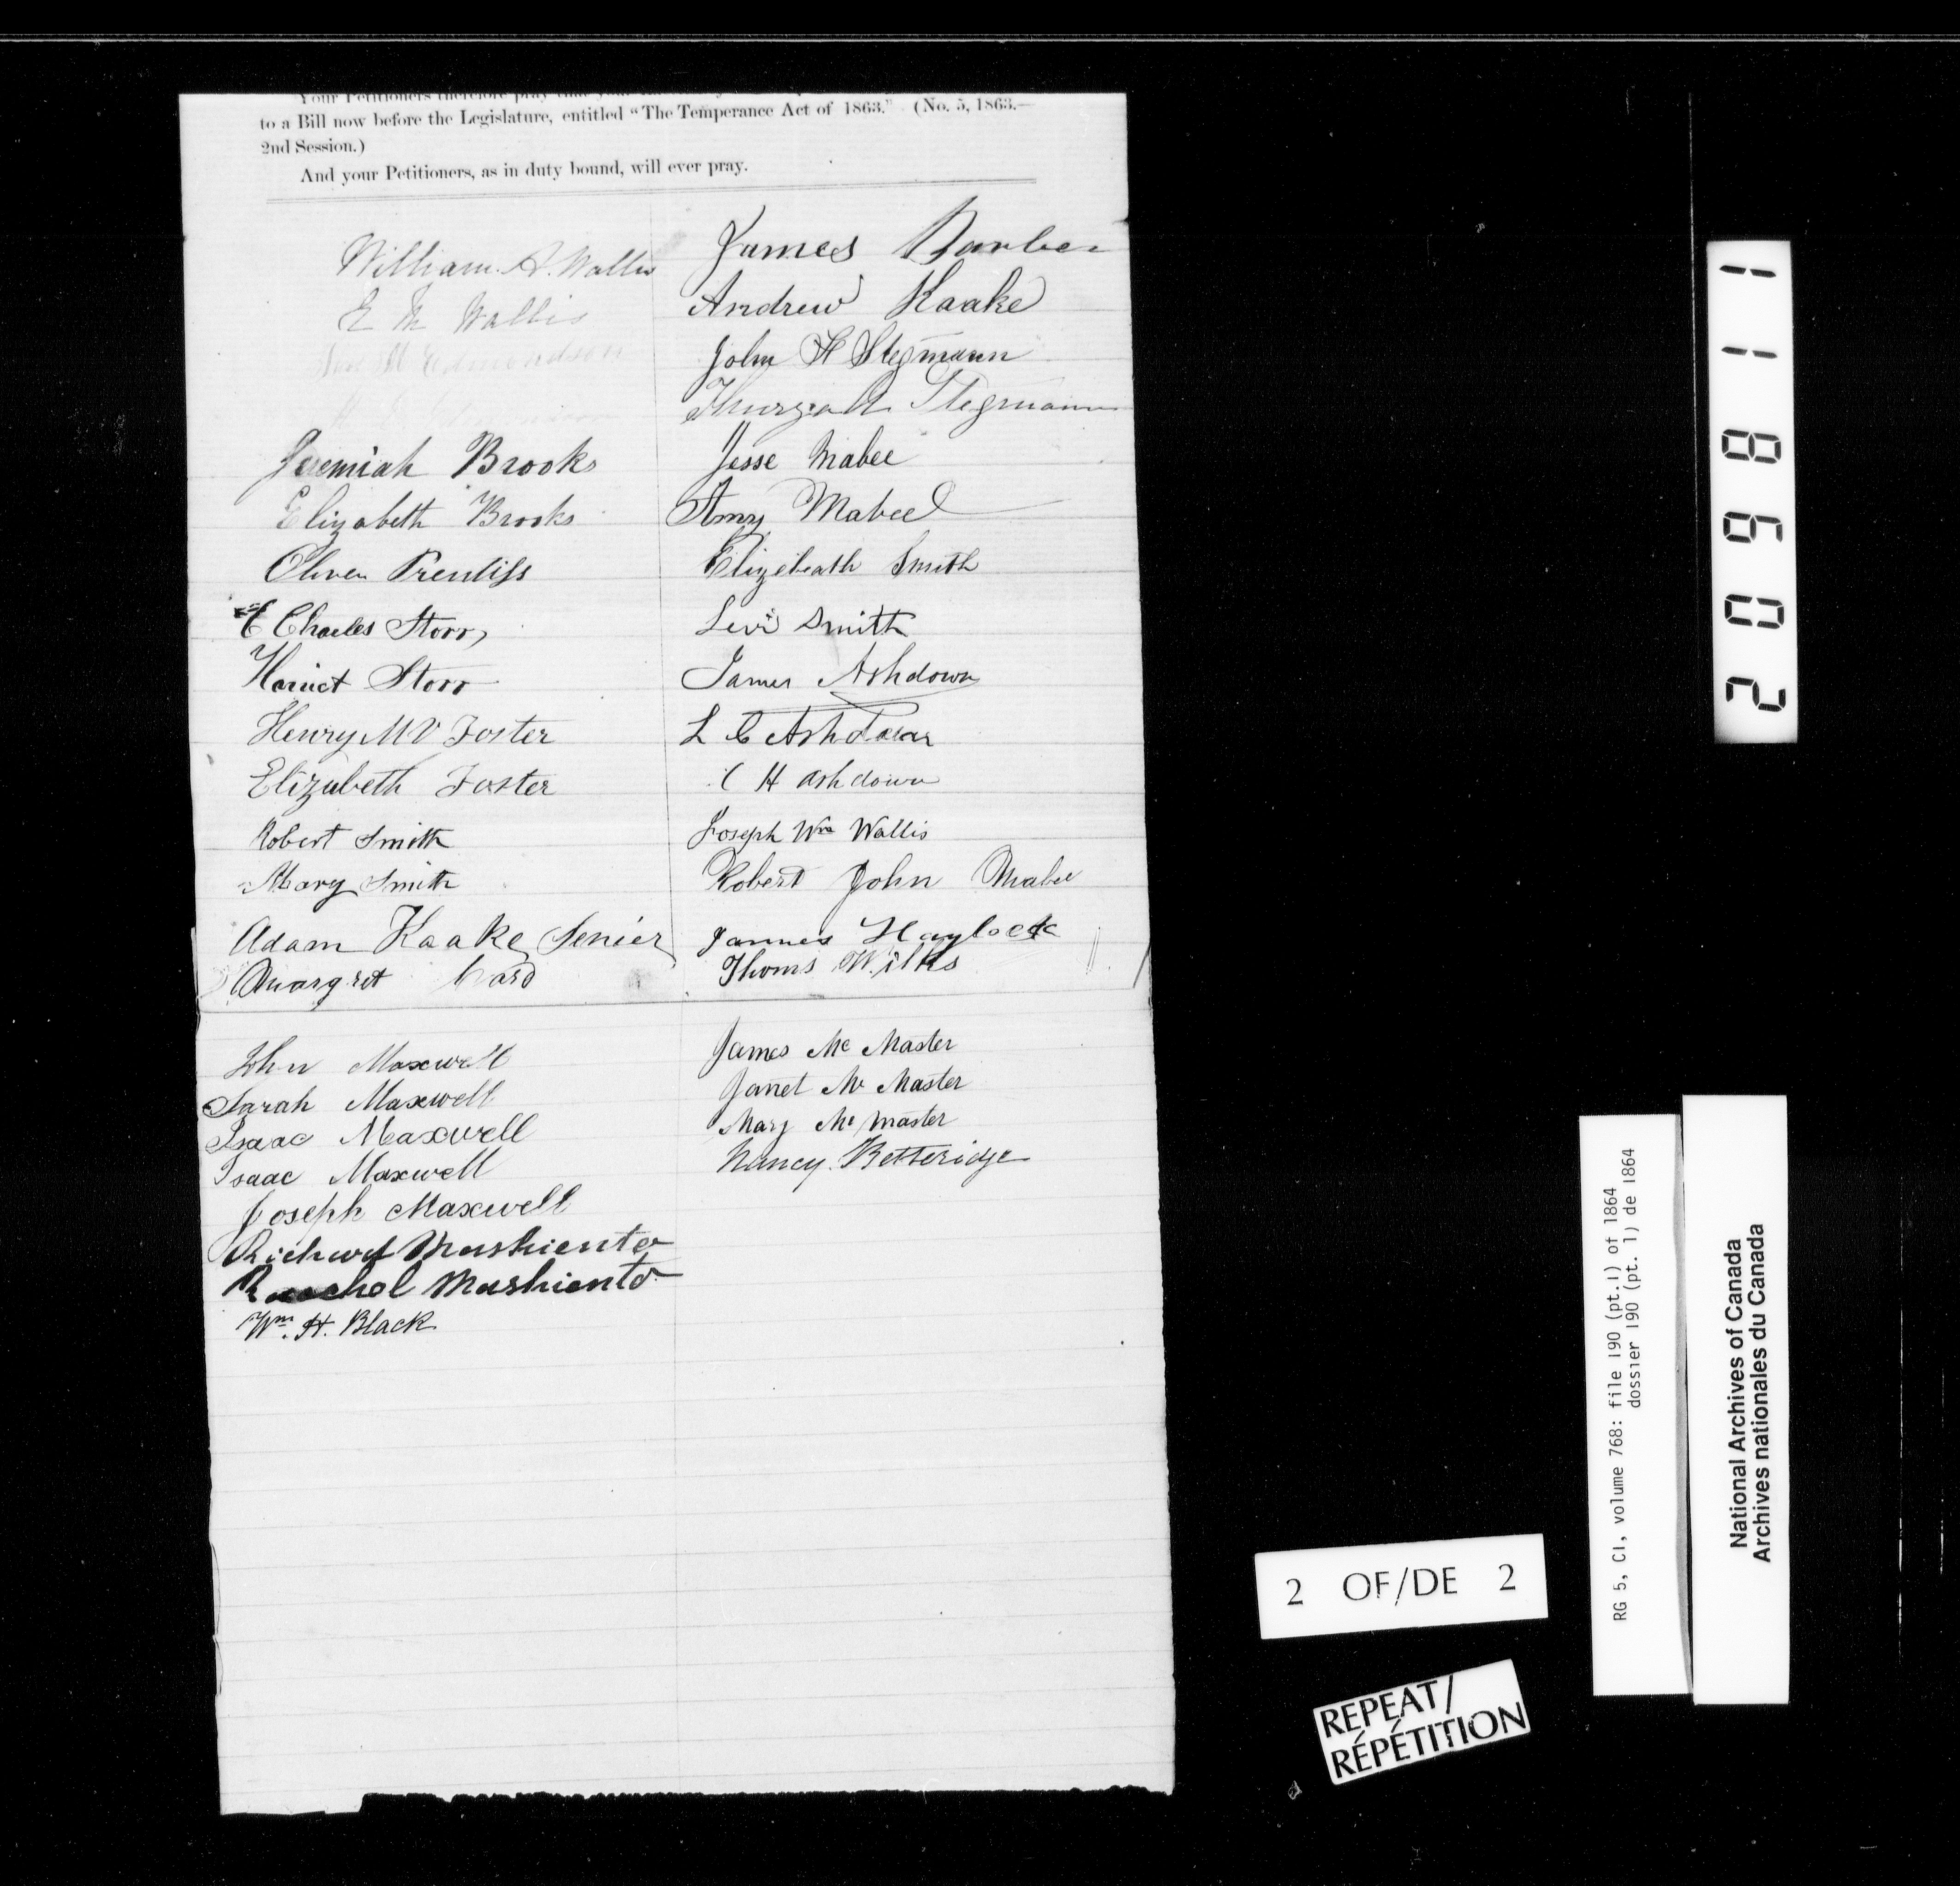 Your Petitioners therefore pray that your
to a Bill now before the Legislature, entitled "The Temperance Act of 1863." (No. 5, 1863.—
2nd Session.)
And your Petitioners, as in duty bound, will ever pray.
William A. Wallis
E M Wallis
Edmondson
Jeremiah Brooks
Elizabeth Brooks
Oliver Prentiss
C Charles Storr
Harriet Storr
Henry M V Foster
Elizabeth Foster
Robert Smith
Mary Smith
Adam Kaake Senier
Margret
James Barber
Andrew Kaake
John H Stegmann
Stegmann
Jesse Mabee
Amy Mabee
Elizebeath Smith
Levi Smith
James Ashdown
L C Ashdown
C H Ashdown
Joseph Wm Wallis
Robert John Mabee
James Haylock
Thoms Wilks
John Maxwell
Sarah Maxwell
Isaac Maxwell
Isaac Maxwell
Joseph Maxwell
Richard Mushiento
Rachel Mushiento
Wm. H. Black
James Mc Master
Janet Mc Master
Mary Mc Master
Nancy Betteridge
209811
RG 5, C1, volume 768: file 190 (pt.1) of 1864
dossier 190 (pt. 1) de 1864
National Archives of Canada
Archives nationales du Canada
2 OF/DE 2
REPEAT/
RÉPÉTITION